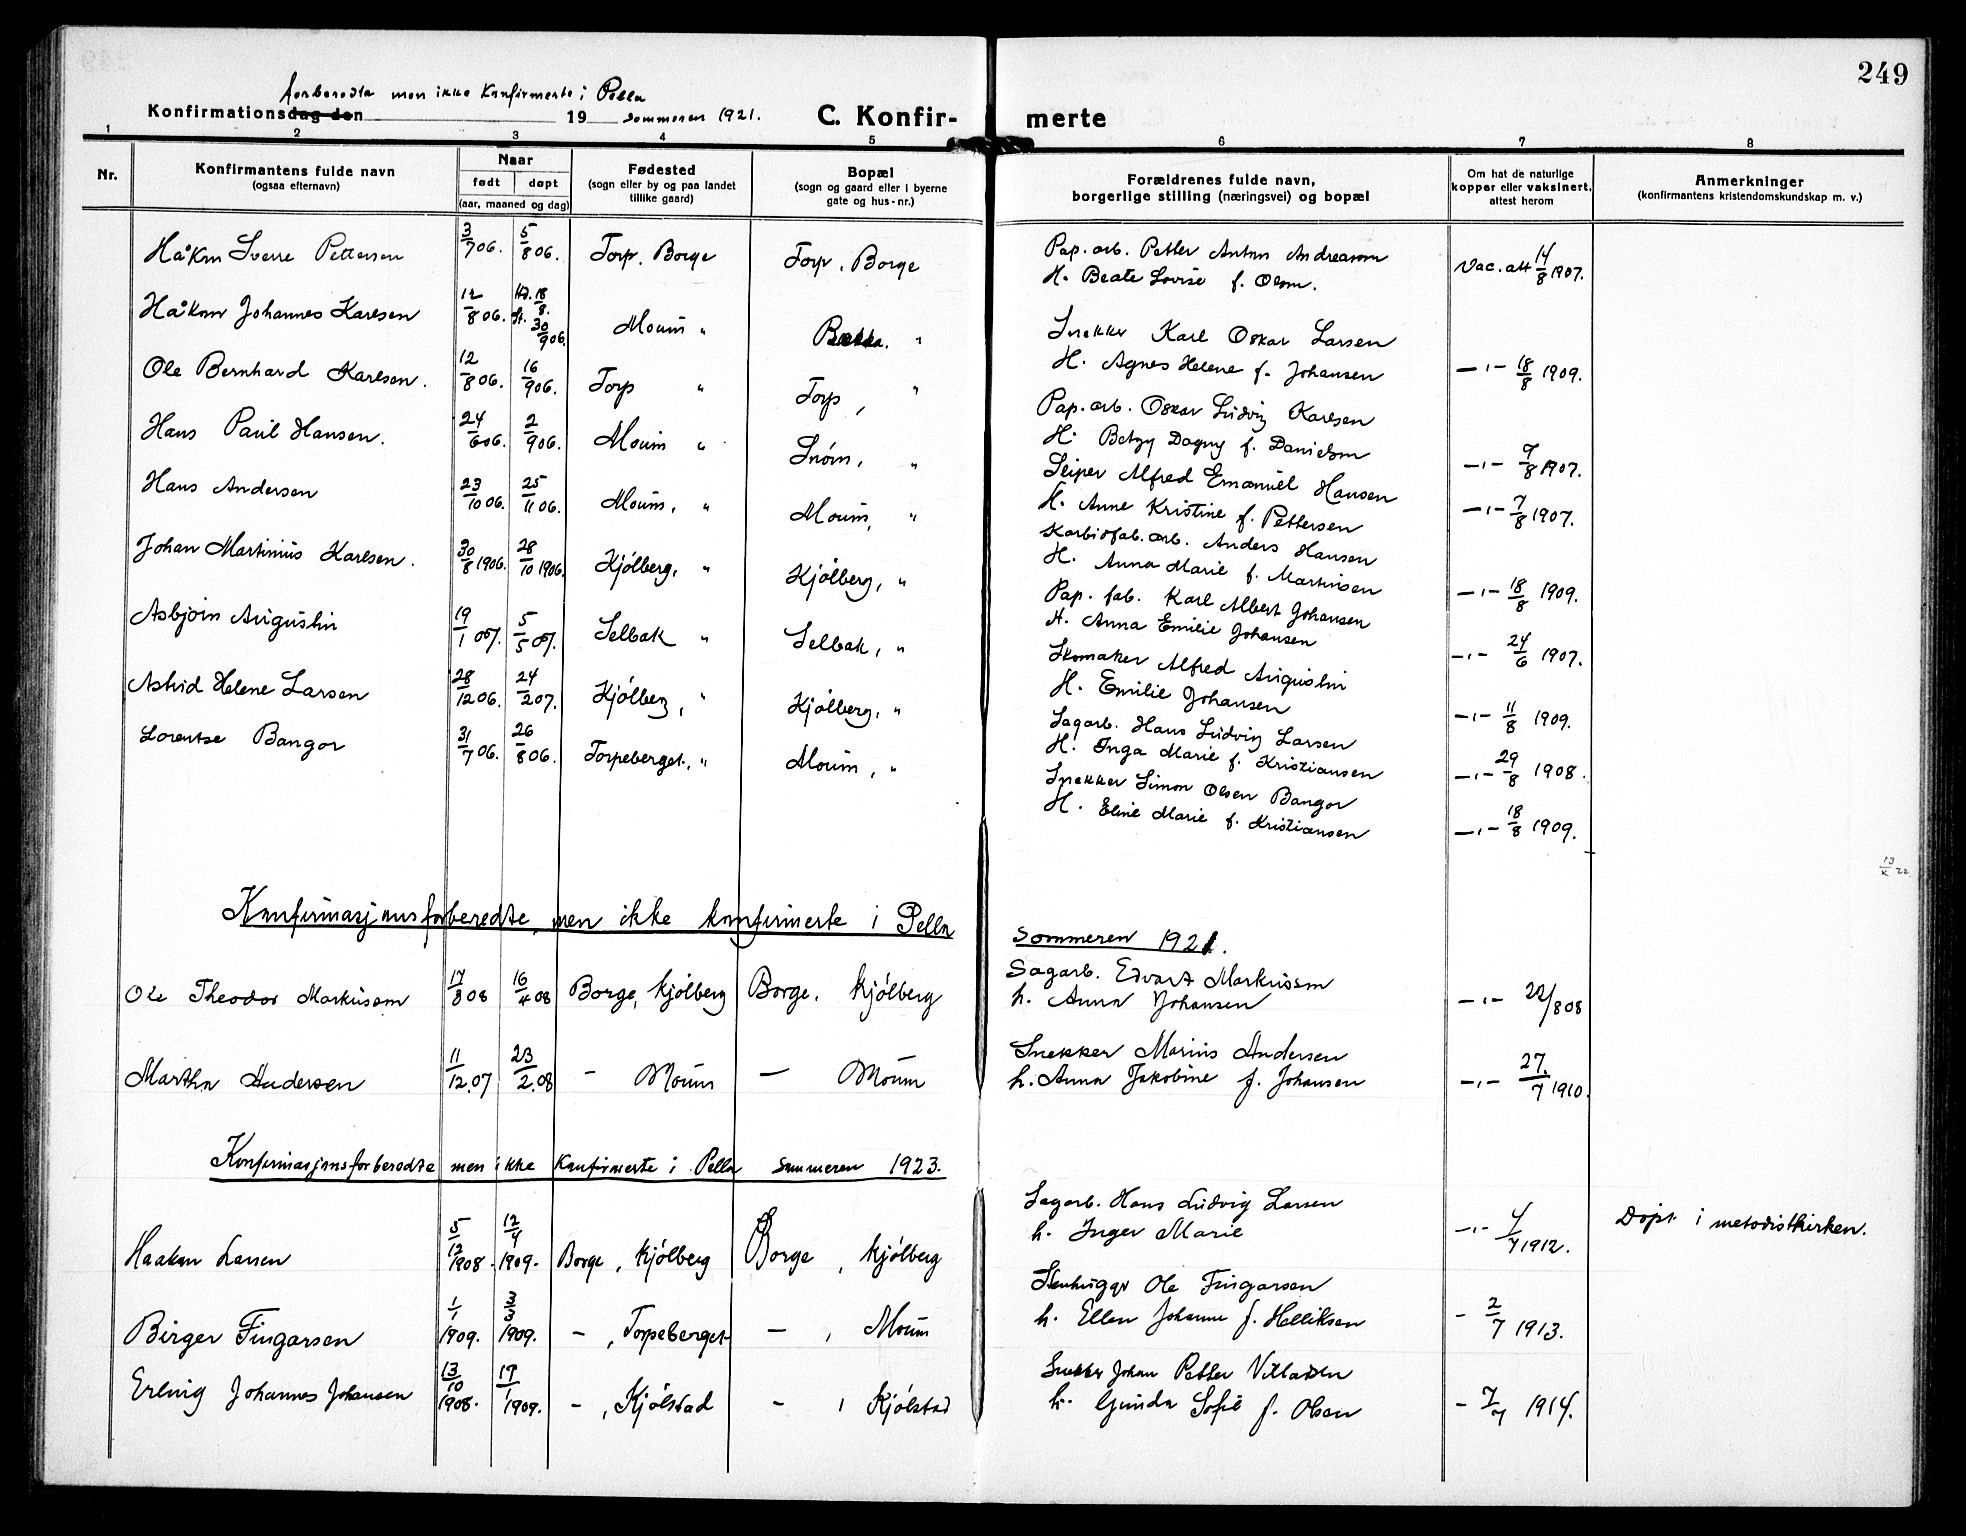 249
forberedte men ikke konfirmerte i Pella
Konfirmationsdag den 19 sommeren 1921. C. Konfir- merte
1 2 3 4 5 6 7 8
Nr. Konfirmantens fulde navn (ogsaa efternavn) Naar født døpt (aar, maaned og dag) Fødested (sogn eller by og paa landet tillike gaard) Bopæl (sogn og gaard eller i byerne gate og hus-nr.) Forældrenes fulde navn, borgerlige stilling (næringsvei) og bopæl Om hat de naturlige kopper eller vaksinert, attest herom Anmerkninger (konfirmantens kristendomskundskap m. v.)
Håkon Sverre Pettersen 3/7 06. 5/8 06. Torp. Borge Torp. Borge Pap. arb. Petter Anton Andreassen
H. Beate Lovise f. Olsen. Vac. att 14/8 1907.
Håkon Johannes Karlsen 12/8 06. 18/8. 30/9 06. Moum " " Snekker Karl Oskar Larsen
H. Agnes Helene f. Johansen —"— 18/8 1909.
Ole Bernhard Karlsen. 12/8 06. 16/9 06. Torp " Torp, " Pap. arb. Oskar Ludvig Karlsen
H. Betzy Dagny f. Danielsen —"— 9/8 1907.
Hans Paul Hansen. 24/6 06. 2/9 06. Moum " " Sliper Alfred Emanuel Hansen
H. Anne Kristine f. Pettersen —"— 7/8 1907.
Hans Andersen 23/10 06. 25/11 06. Moum, " Moum, " Karbidfab. arb. Anders Hansen
H. Anna Marie f. Martinsen —"— 18/8 1909.
Johan Martinius Karlsen. 30/8 1906. 28/10 1906. Kjölberg, " Kjölberg, " Pap. fab. Karl Albert Johansen
H. Anna Emilie Johansen —"— 24/6 1907.
Asbjörn Augustin 19/1 07. 5/5 07. Selbak " Selbak, " Skomaker Alfred Augustin
H. Emilie Johansen —"— 11/8 1909.
Astrid Helene Larsen 28/12 06. 24/2 07. Kjölberg, " Kjölberg, " Sagarb. Hans Ludvig Larsen
H. Inga Marie f. Kristiansen —"— 29/8 1908.
Lorentse Bangor 31/7 06. 26/8 06. Torpeberget, " Moum, " Snekker Simon Olsen Bangor
H. Eline Marie f. Kristiansen —"— 18/8 1909.
13/x 22.
Konfirmasjonsforberedte, men ikke konfirmerte i Pella sommeren 1921.
Ole Theodor Markussen 17/3 08 16/4 08 Borge, Kjölberg Borge. Kjölberg Sagarb. Edvart Markussen
h. Anna Johansen —"— 22/8 08
Martha Andersen 11/12.07 23/2.08 — Moum — Moum Snekker Marius Andersen
h. Anna Jakobine f. Johansen —"— 27./7 1910.
Konfirmasjonsforberedte men ikke konfirmerte i Pella sommeren 1923.
Haakon Larsen 5/12 1908. 12/4 1909. Borge, Kjölberg Borge, Kjölberg Sagarb. Hans Ludvig Larsen
h. Inger Marie —"— 4/7 1912. Döpt i metodistkirken.
Birger Fingarsen 1/1 1909. 3/3 1909. —, Torpeberget —, Moum Stenhugger Ole Fingarsen
h. Ellen Johanne f. Helliksen — 2/7 1913.
Erling Johannes Johansen 13/10 1908. 17/1 1909. —, Kjölstad —, Kjölstad Snekker Johan Petter Villadsen
h. Gunda Sofie f. Olsen — 7/7 1914.